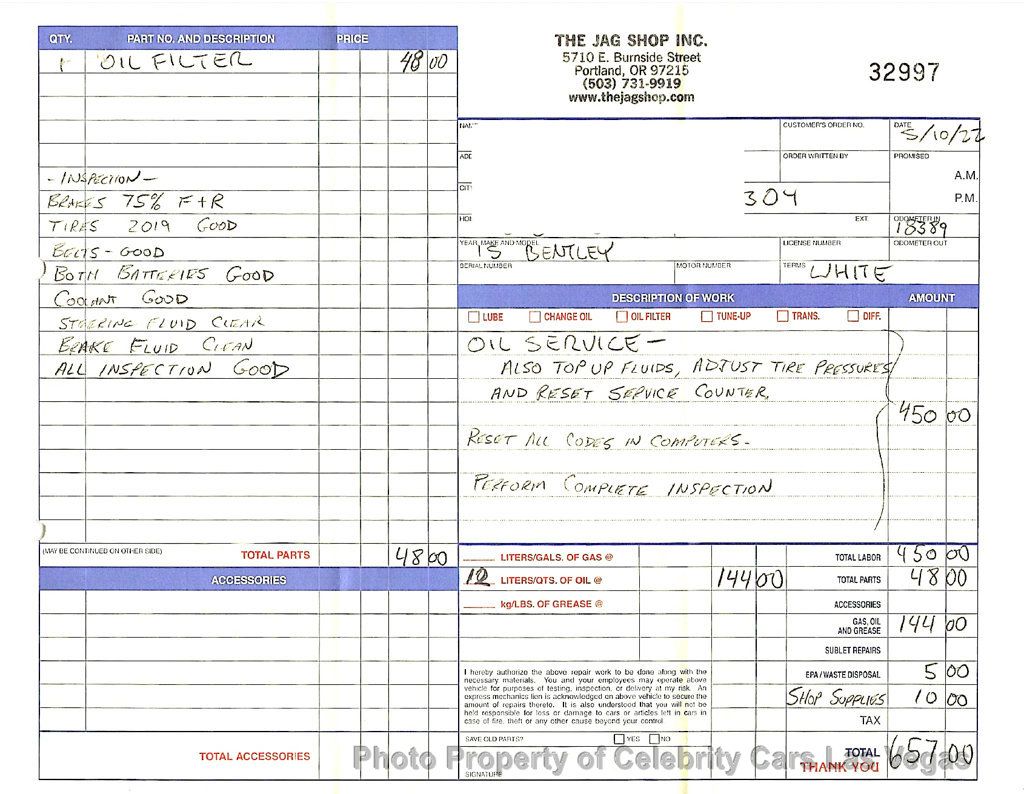 QTY. PART NO. AND DESCRIPTION PRICE
1 OIL FILTER 48 00
- INSPECTION -
BRAKES 75% F + R
TIRES 2019 GOOD
BELTS - GOOD
BOTH BATTERIES GOOD
COOLANT GOOD
STEERING FLUID CLEAR
BRAKE FLUID CLEAN
ALL INSPECTION GOOD
(MAY BE CONTINUED ON OTHER SIDE) TOTAL PARTS 48 00
ACCESSORIES
TOTAL ACCESSORIES
THE JAG SHOP INC.
5710 E. Burnside Street
Portland, OR 97215
(503) 731-9919
www.thejagshop.com
32997
CUSTOMER'S ORDER NO. DATE 5/10/22
ORDER WRITTEN BY PROMISED
A.M.
P.M.
304
EXT. ODOMETER IN 18389
YEAR, MAKE AND MODEL 15 BENTLEY LICENSE NUMBER ODOMETER OUT
SERIAL NUMBER MOTOR NUMBER TERMS WHITE
DESCRIPTION OF WORK AMOUNT
LUBE CHANGE OIL OIL FILTER TUNE-UP TRANS. DIFF.
OIL SERVICE -
ALSO TOP UP FLUIDS, ADJUST TIRE PRESSURES
AND RESET SERVICE COUNTER,
450 00
RESET ALL CODES IN COMPUTERS -
PERFORM COMPLETE INSPECTION
LITERS/GALS. OF GAS @ TOTAL LABOR 450 00
12 LITERS/QTS. OF OIL @ 144 00 TOTAL PARTS 48 00
kg/LBS. OF GREASE @ ACCESSORIES
GAS, OIL
AND GREASE 144 00
SUBLET REPAIRS
EPA / WASTE DISPOSAL 5 00
SHOP SUPPLIES 10 00
TAX
I hereby authorize the above repair work to be done along with the
necessary materials. You and your employees may operate above
vehicle for purposes of testing, inspection, or delivery at my risk. An
express mechanics lien is acknowledged on above vehicle to secure the
amount of repairs thereto. It is also understood that you will not be
held responsible for loss or damage to cars or articles left in cars in
case of fire, theft or any other cause beyond your control.
SAVE OLD PARTS? YES NO
TOTAL 657 00
THANK YOU
SIGNATURE
Photo Property of Celebrity Cars Las Vegas